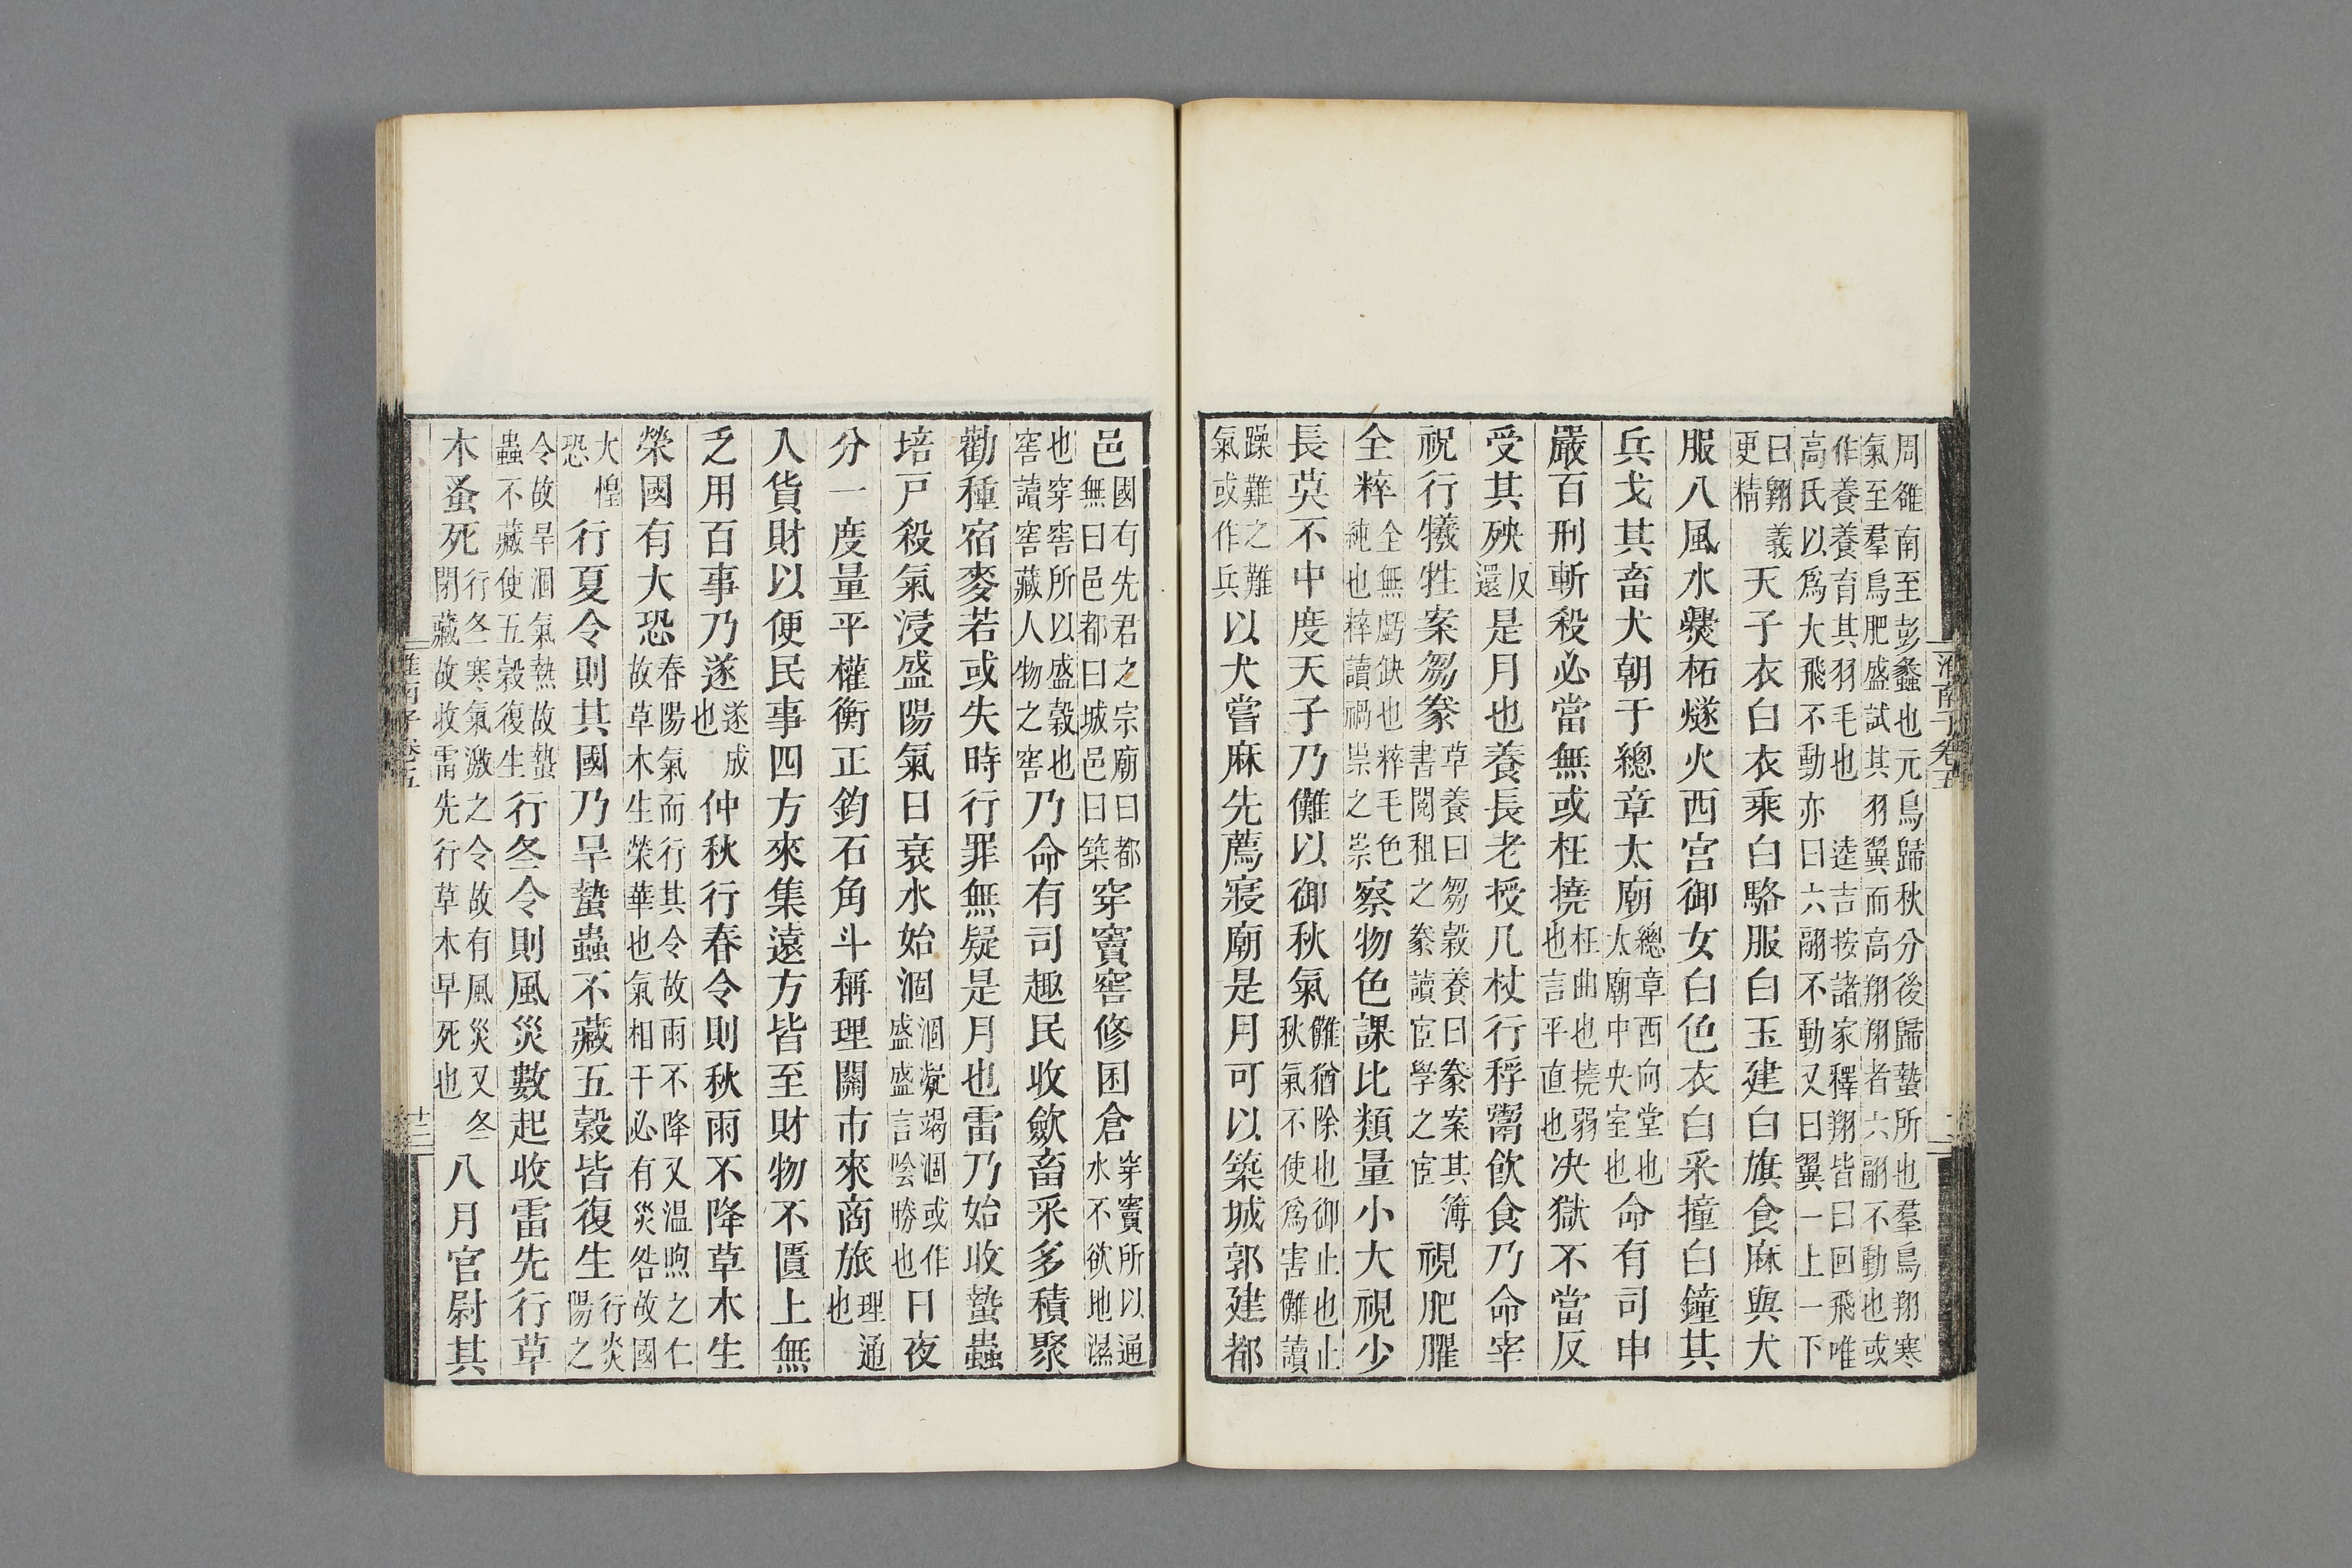 周雒南至彭蠡也元鳥歸秋分後歸蟄所也羣鳥翔寒
氣至羣鳥肥盛試其羽翼而高翔翔者六翮不動也或
作養養育其羽毛也 逵吉按諸家釋翔皆曰回飛唯
高氏以爲大飛不動亦曰六翮不動又曰翼一上一下
曰翺義更精天子衣白衣乘白駱服白玉建白旗食麻與犬
服八風水爨柘燧火西宮御女白色衣白采撞白鐘其
兵戈其畜犬朝于總章太廟總章西向堂也太廟中央室也命有司申
嚴百刑斬殺必當無或枉撓枉曲也撓弱也言平直也决獄不當反
受其殃反還是月也養長老授几杖行稃鬻飲食乃命宰
祝行犧牲案芻豢草養曰芻穀養曰豢案其簿書閱租之豢讀宦學之宦視肥臞
全粹全無虧缺也粹毛色純也粹讀禍祟之祟察物色課比類量小大視少
長莫不中度天子乃儺以御秋氣儺猶除也御止也止秋氣不使爲害儺讀
躁難之難氣或作兵以犬嘗麻先薦寢廟是月可以築城郭建都
淮南子卷五
邑國有先君之宗廟曰都無曰邑都曰城邑曰築穿竇窖修囷倉穿竇所以通水不欲地濕
也穿窖所以盛穀也窖讀窖藏人物之窖乃命有司趣民收歛畜采多積聚
勸種宿麥若或失時行罪無疑是月也雷乃始收蟄蟲
培戸殺氣浸盛陽氣日衰水始涸涸凝竭涸或作盛盛言陰勝也日夜
分一度量平權衡正鈞石角斗稱理關市來商旅理通也
入貨財以便民事四方來集遠方皆至財物不匱上無
乏用百事乃遂遂成也仲秋行春令則秋雨不降草木生
榮國有大恐春陽氣而行其令故雨不降又温煦之仁故草木生榮華也氣相干必有災咎故國
大惶恐行夏令則其國乃旱蟄蟲不藏五穀皆復生行炎陽之
令故旱涸氣熱故蟄蟲不藏使五穀復生行冬令則風災數起收雷先行草
木蚤死行冬寒氣激之令故有風災又冬閉藏故收雷先行草木早死也八月官尉其
淮南子卷五
十二